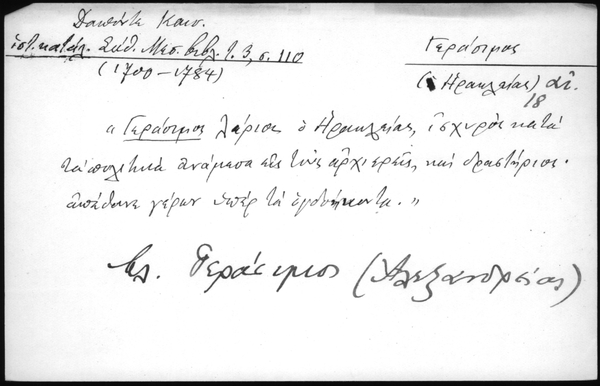 Δαπόντε Καισ.
ἱστ. κατάλ. Σάθ. Μεσ. Βιβλ. τ. 3, σ. 110
(1700–1784)
Γεράσιμος
(ὁ Ἡρακλείας) αἰ.
18
« Γεράσιμος Λάρισα ὁ Ἡρακλείας, ἰσχυρὸς κατὰ
τὰ πολιτικὰ ἀνάμεσα εἰς τοὺς ἀρχιερεῖς, καὶ δραστήριος.
ἀπέθανε γέρων ὑπὲρ τὰ ὀγδοήκοντα. »
βλ. Γεράσιμος (Ἀλεξανδρείας)